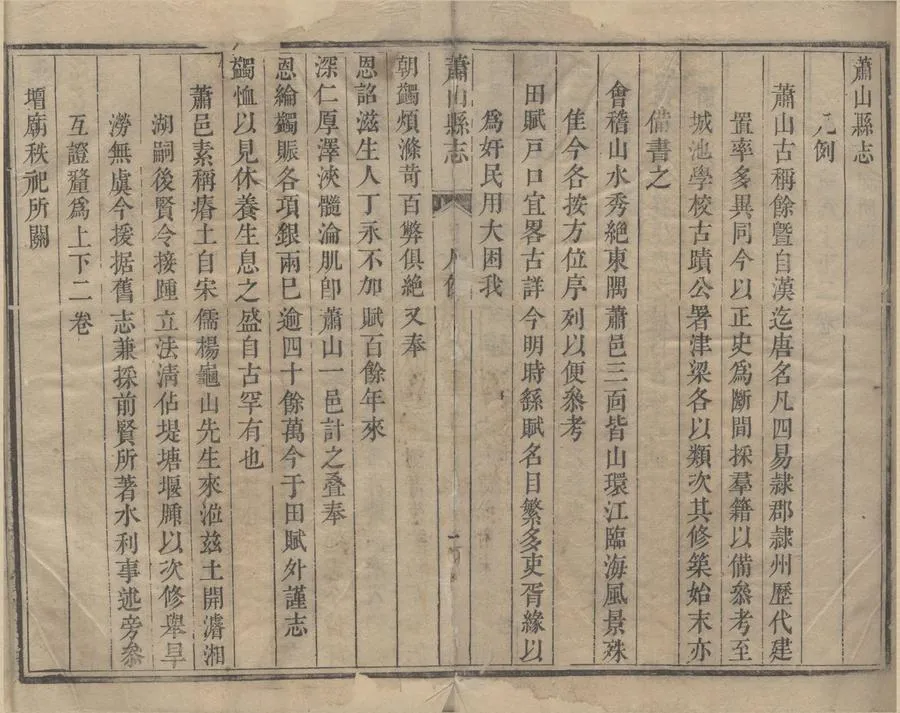 蕭山縣志
凡例
蕭山古稱餘暨自漢迄唐名凡四易隸郡隸州歷代建
置率多異同今以正史爲斷間採羣籍以備參考至
城池學校古蹟公署津梁各以類次其修築始末亦
備書之
會稽山水秀絕東隅蕭邑三面皆山環江臨海風景殊
隹今各按方位序列以便參考
田賦戸口宜畧古詳今明時繇賦名目繁多吏胥緣以
爲奸民用大困我
蕭山縣志
凡例
一
朝蠲煩滌苛百弊俱絕又奉
恩詔滋生人丁永不加賦百餘年來
深仁厚澤浹髓淪肌卽蕭山一邑計之叠奉
恩綸蠲賑各項銀兩已逾四十餘萬今于田賦外謹志
蠲恤以見休養生息之盛自古罕有也
蕭邑素稱瘠土自宋儒楊龜山先生來涖兹土開濬湘
湖嗣後賢令接踵立法淸佔堤塘堰牐以次修舉旱
澇無虞今援据舊志兼採前賢所著水利事述旁叅
互證釐爲上下二卷
壇廟秩祀所關